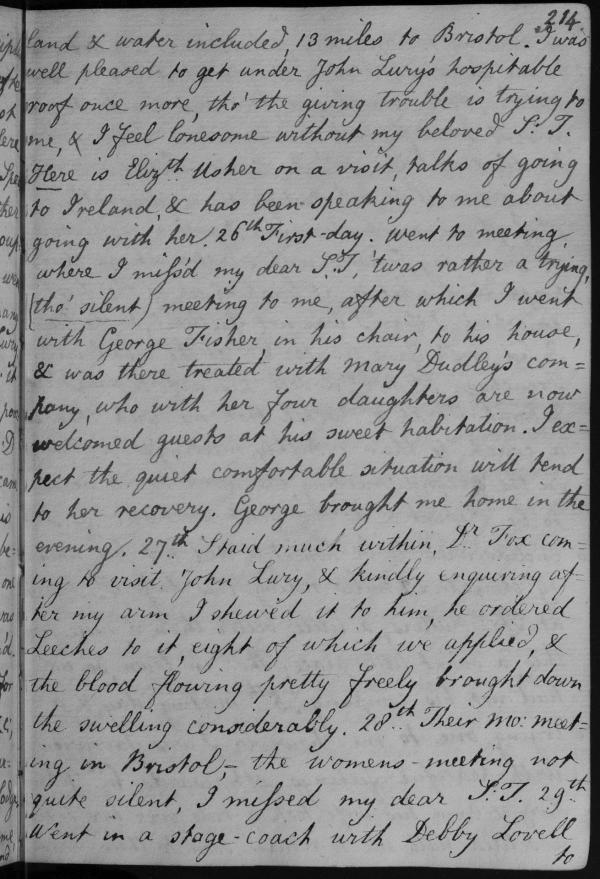 214
land & water included, 13 miles to Bristol. I was
well pleased to get under John Lury's hospitable
roof once more, tho' the giving trouble is trying to
me, & I feel lonesome without my beloved S. T.
Here is Elizth. Usher on a visit, talks of going
to Ireland, & has been speaking to me about
going with her. 26th First-day. went to meeting,
where I miss'd my dear S. T, 'twas rather a trying,
(tho' silent) meeting to me, after which I went
with George Fisher, in his chair, to his house,
& was there treated with Mary Dudley's com=
pany, who with her four daughters are now
welcomed guests at his sweet habitation. I ex=
pect the quiet comfortable situation will tend
to her recovery. George brought me home in the
evening. 27.th Staid much within, Dr. Fox com=
ing to visit John Lury, & kindly enquiring af=
ter my arm I shewed it to him, he ordered
Leeches to it, eight of which we applied, &
the blood flowing pretty freely brought down
the swelling considerably. 28.th Their mo: meet=
ing in Bristol,– the womens-meeting not
quite silent, I missed my dear S. T. 29.th
Went in a stage-coach with Debby Lovell
to